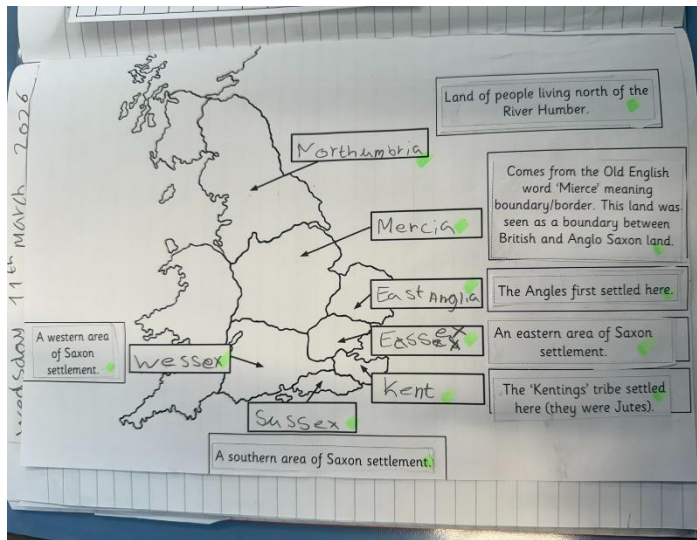 Wednesday 11th March 2026
Land of people living north of the
River Humber.
Northumbria
Comes from the Old English
word ‘Mierce’ meaning
boundary/border. This land was
seen as a boundary between
British and Anglo Saxon land.
Mercia
East Anglia
The Angles first settled here.
Essex
An eastern area of Saxon
settlement.
A western area
of Saxon
settlement.
Wessex
Kent
The ‘Kentings’ tribe settled
here (they were Jutes).
Sussex
A southern area of Saxon settlement.